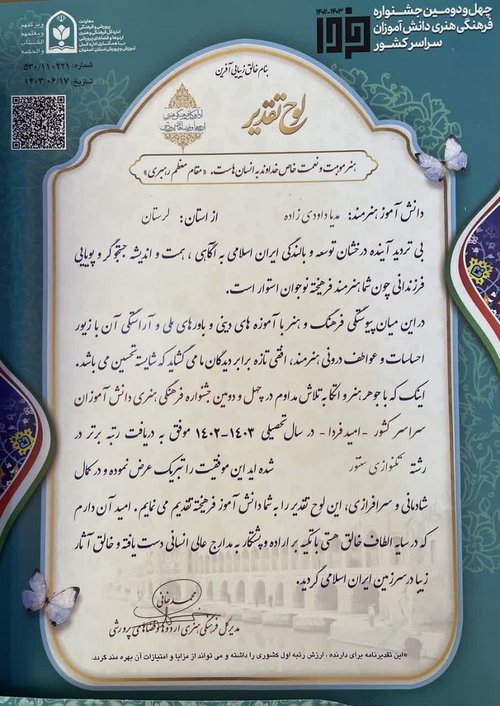 چهل و دومین جشنواره
فرهنگی هنری دانش آموزان
سراسر کشور
۱۴۰۲-۱۴۰۳
فردا
معاونت
پرورشی و فرهنگی
اداره کل فرهنگی و هنری
اردوها و فضاهای پرورشی
شماره: ۵۳۰/۱۱۰۲۲۱
تاریخ: ۱۴۰۳/۰۶/۱۷
بنام خالق زیبایی آفرین
لوح تقدیر
هنر موهبت و نعمت خاص خداوند به انسان هاست. «مقام معظم رهبری»
دانش آموز هنرمند: مدیا داودی زاده از استان: لرستان
بی تردید آینده درخشان توسعه و بالندگی ایران اسلامی به آگاهی، همت و اندیشه جستجوگر و پویایی
فرزندانی چون شما هنرمند فرهیخته نوجوان استوار است.
در این میان پیوستگی فرهنگ و هنر با آموزه های دینی و باورهای ملی و آراستگی آن با زیور
احساسات و عواطف درونی هنرمند، افقی تازه برابر دیدگان ما می گشاید که شایسته تحسین می باشد.
اینک که با جوهر هنر و اتکا به تلاش مداوم در چهل و دومین جشنواره فرهنگی هنری دانش آموزان
سراسر کشور - امید فردا - در سال تحصیلی ۱۴۰۳-۱۴۰۲ موفق به دریافت رتبه برتر در
رشته تکنوازی سنتور شده اید این موفقیت را تبریک عرض نموده و در کمال
شادمانی و سرافرازی، این لوح تقدیر را به شما دانش آموز فرهیخته تقدیم می نمایم. امید آن دارم
که در سایه الطاف خالق هستی با تکیه بر اراده و پشتکار به مدارج عالی انسانی دست یافته و خالق آثار
زیبا در سرزمین ایران اسلامی گردید.
مدیرکل فرهنگی هنری اردوها و فضاهای پرورشی
«این تقدیرنامه برای دارنده، ارزش رتبه اول کشوری را داشته و می تواند از مزایا و امتیازات آن بهره مند گردد.